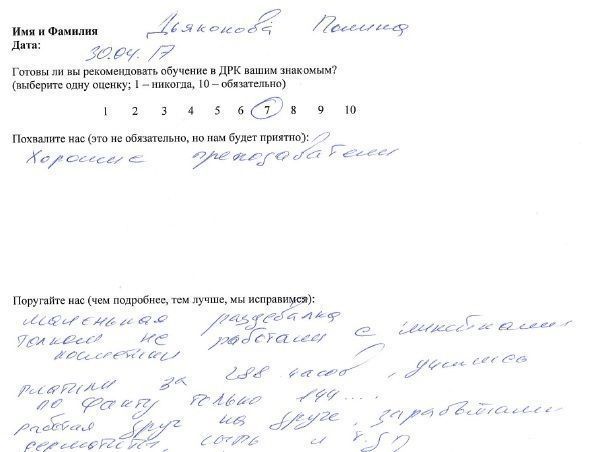 Имя и Фамилия Дьяконова Полина
Дата: 30.04.17
Готовы ли вы рекомендовать обучение в ДРК вашим знакомым?
(выберите одну оценку; 1 – никогда, 10 – обязательно)
1 2 3 4 5 6 7 8 9 10
Похвалите нас (это не обязательно, но нам будет приятно):
Хорошие преподаватели
Поругайте нас (чем подробнее, тем лучше, мы исправимся):
маленькая раздевалка
толком не работали с линейками
косметики
платили за 288 часов, учились
по факту только 144....
работая друг на друге, зарабатали
дерматиты, сыпь и т.д